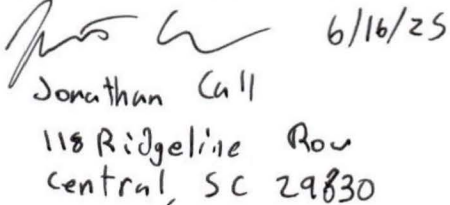 6/16/25
Jonathan Call
118 Ridgeline Row
Central, SC 29630